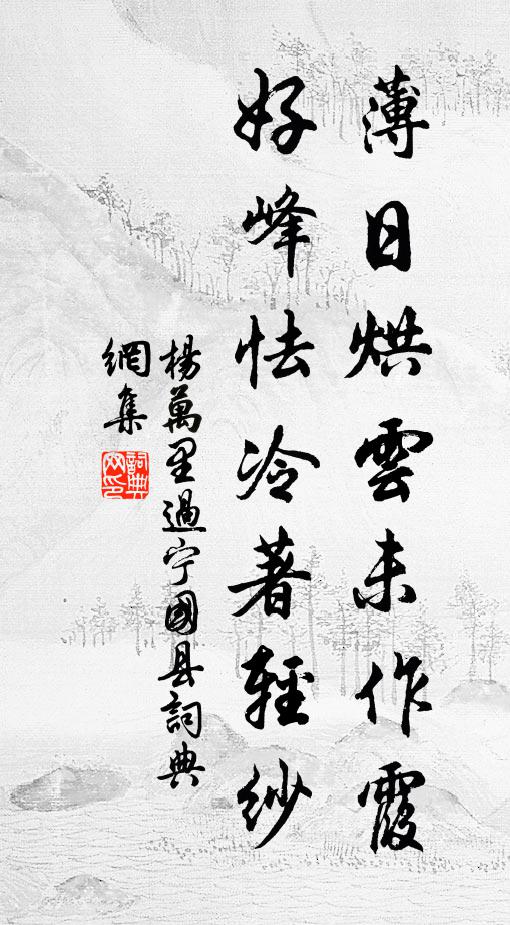 薄日烘雲未作霞
好峰怯冷著輕紗
楊萬里過宁國县詞典
網集
詞典
網印